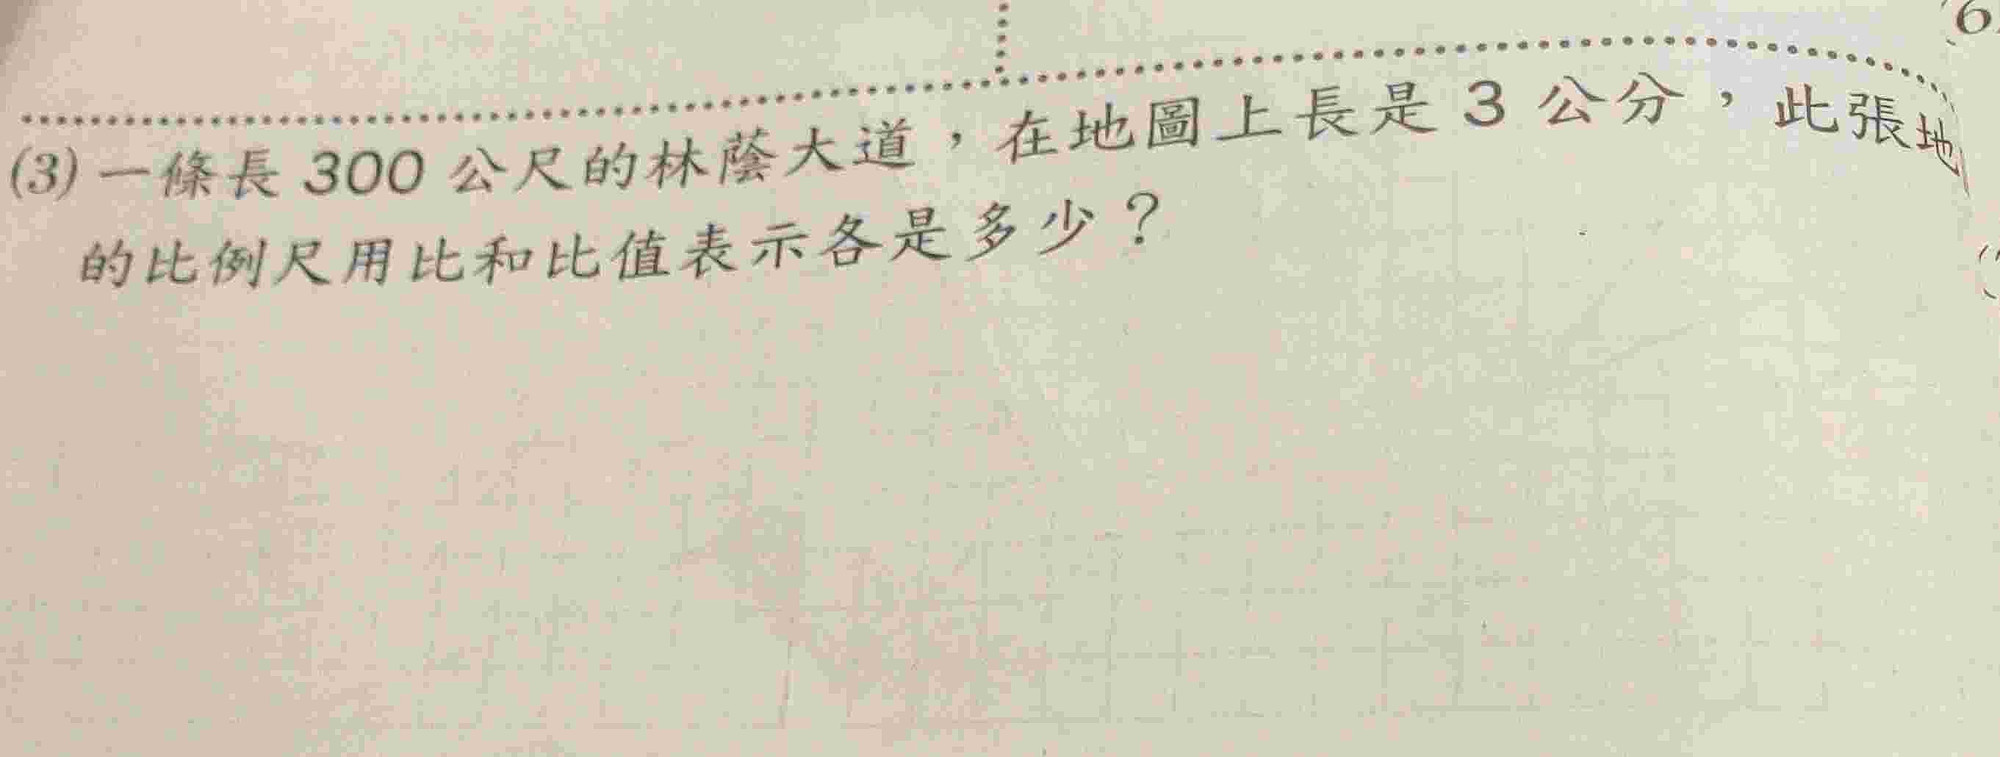 (3) 一條長 300 公尺的林蔭大道，在地圖上長是 3 公分，此張地
的比例尺用比和比值表示各是多少？